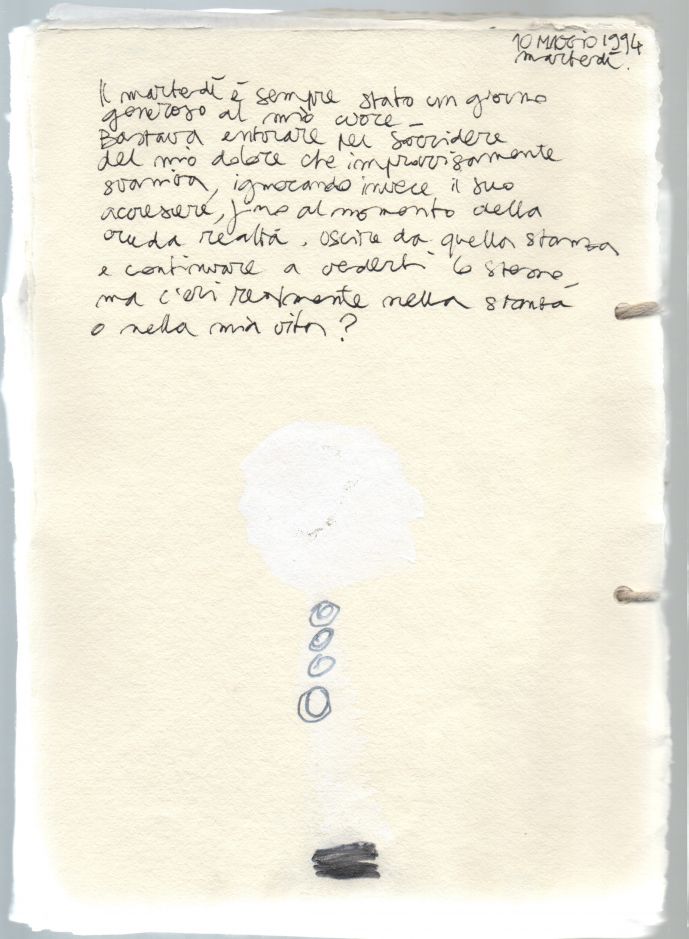 10 MAGGIO 1994
martedì.
Il martedì è sempre stato un giorno
generoso al mio cuore_
Bastava entrare per sorridere
del mio dolore che improvvisamente
svaniva, ignorando invece il suo
accrescere, fino al momento della
cruda realtà. uscire da quella stanza
e continuare a vederti lo stesso,
ma c'eri realmente nella stanza
o nella mia vita?